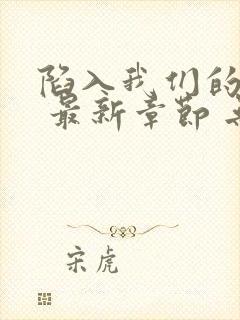 陷入我们的
最新章节
宋虎